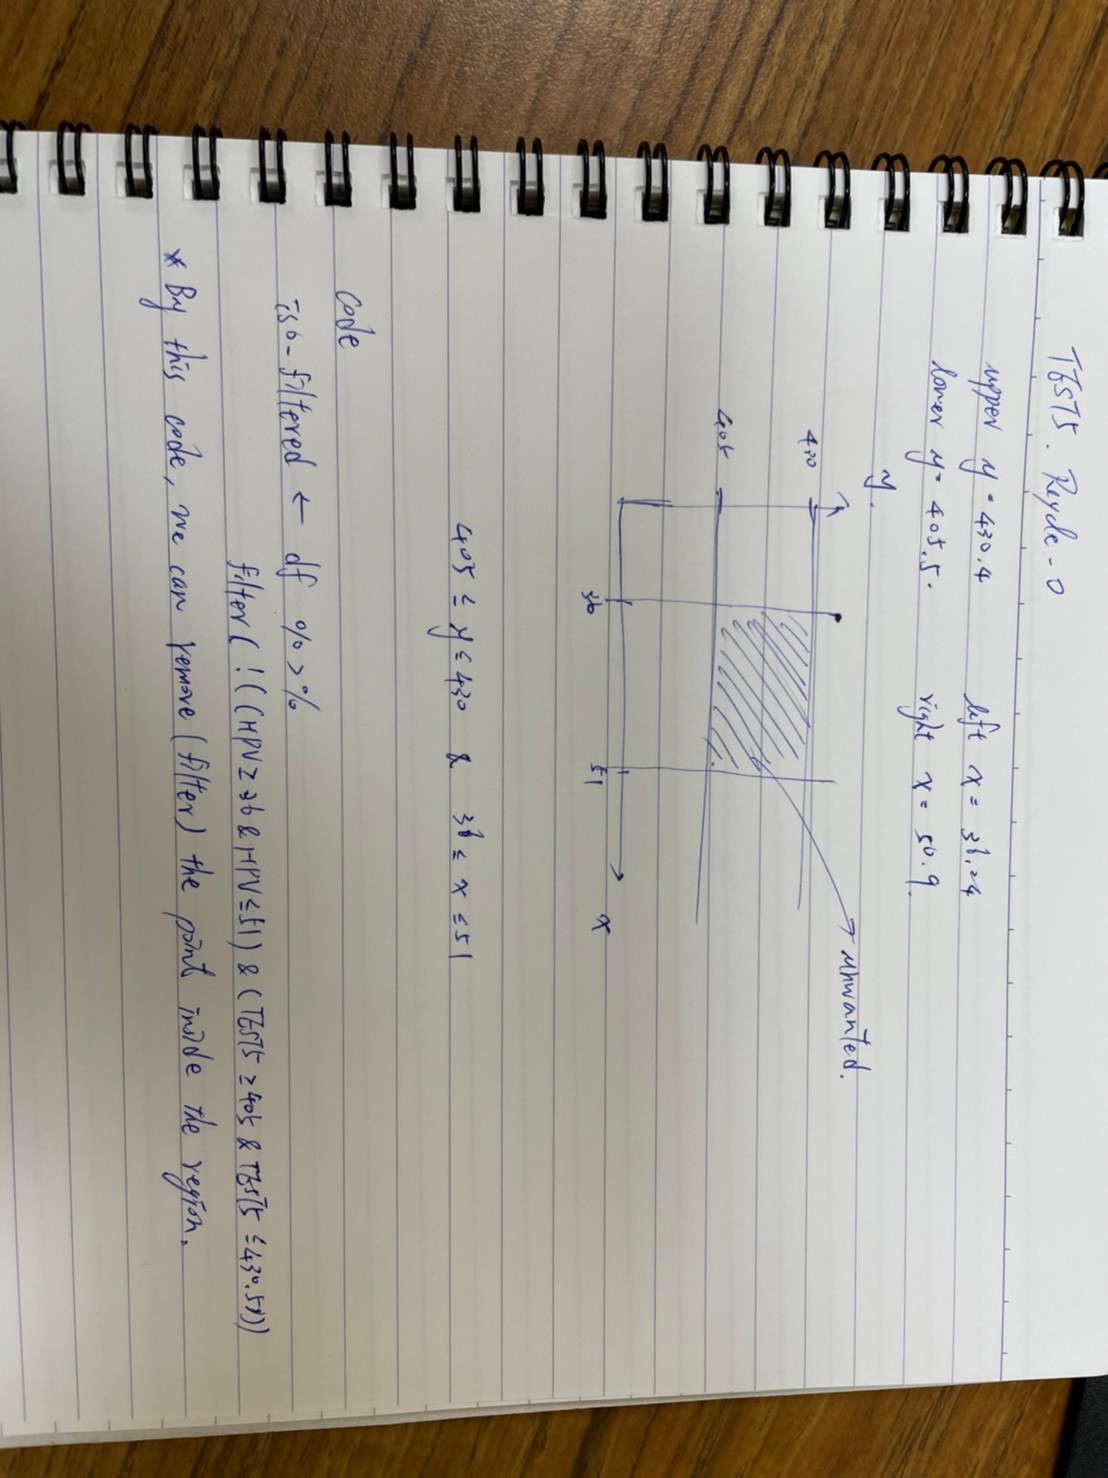 TESTS. Recycle-0
upper y = 430.4 left x = 36.24
lower y = 405.5. right x = 50.9.
y.
unwanted.
430
405
36 51 x
405 ≤ y ≤ 430 & 36 ≤ x ≤ 51
Code
iso-filtered ← df %>%
filter( ! ((HPV ≥ 36 & HPV ≤ 51) & (TESTS ≥ 405 & TESTS ≤ 430.5)))
* By this code, we can remove (filter) the point inside the region.